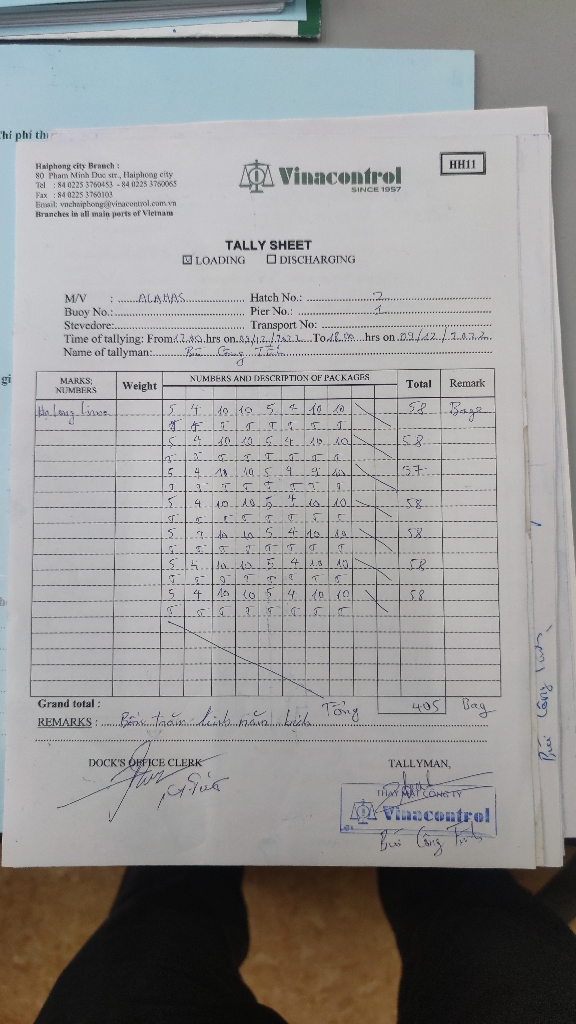 hi phí th
Haiphong city Branch :
80 Pham Minh Duc str., Haiphong city
Tel : 84 0225 3760453 - 84 0225 3760065
Fax : 84 0225 3760103
Email: vnchaiphong@vinacontrol.com.vn
Branches in all main ports of Vietnam
Vinacontrol
SINCE 1957
HH11
TALLY SHEET
LOADING DISCHARGING
M/V : Hatch No.: 2
Buoy No.: Pier No.: 1
Stevedore: Transport No:
Time of tallying: From hrs on To 18.00 hrs on 09/12/2022
Name of tallyman: Bùi Công
MARKS; NUMBERS Weight NUMBERS AND DESCRIPTION OF PACKAGES Total Remark
5 4 10 10 5 10 10 58 Bags
5 10 10 5 4 10 10 58
5 4 10 10 5 4 9 10 57
5 4 10 10 5 4 10 10 58
5 10 10 5 4 10 10 58
5 4 10 10 5 4 10 10 58
5 4 10 10 5 4 10 10 58
Grand total : Tổng 405 Bag
REMARKS : Bốn trăm linh năm bịch
DOCK'S OFFICE CLERK TALLYMAN,
THAY MẶT CÔNG TY
Vinacontrol
Bùi Công
Bùi Công